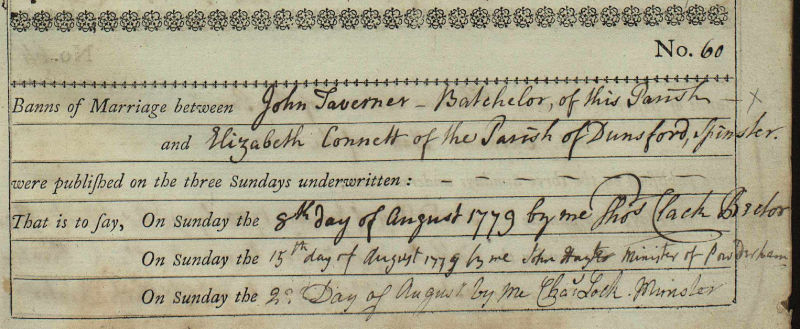 No. 60
Banns of Marriage between John Taverner - Batchelor, of this Parish - x
and Elizabeth Connett of the Parish of Dunsford, Spinster.
were publiſhed on the three Sundays underwritten : - - - - - - -
That is to ſay, On Sunday the 8th day of August 1779 by me Thos Clack Rector
On Sunday the 15th day of August 1779 by me John Minister of Powderham
On Sunday the Day of August by me Chas Lock. Minister